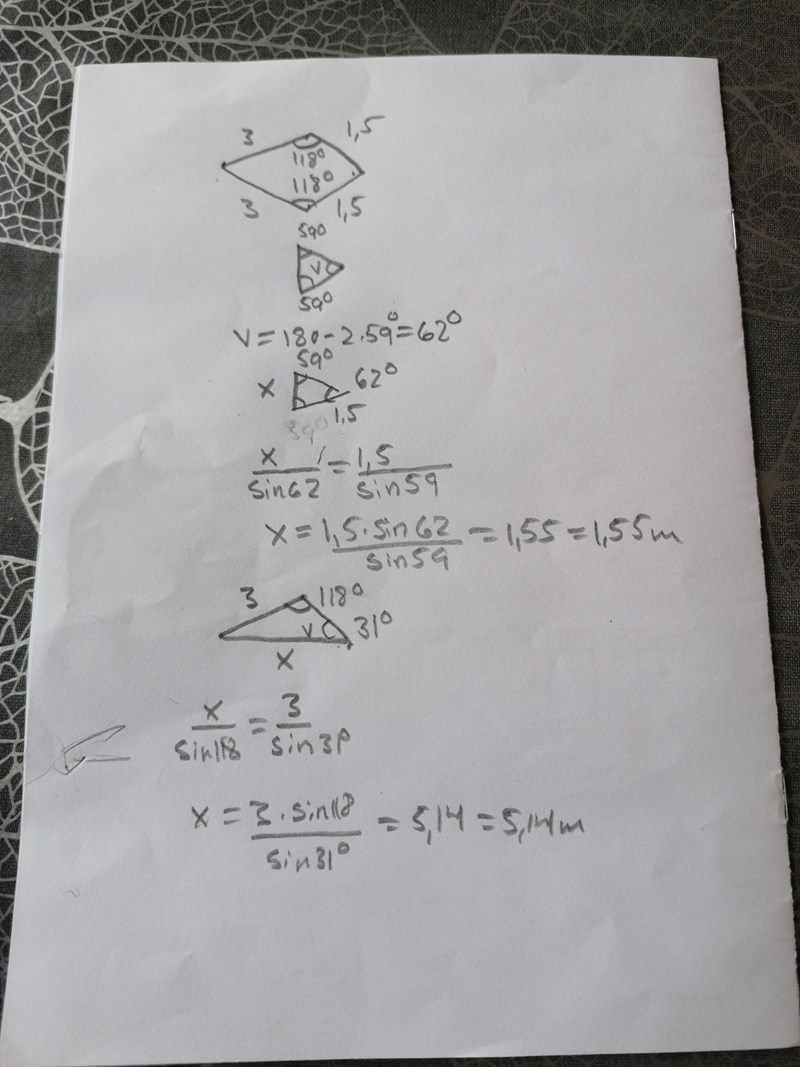 3 1,5
118°
118°
3 1,5
59°
V
59°
V = 180 - 2.59° = 62°
59°
x 62°
1,5
59°
x/sin62 = 1,5/sin59
x = 1,5·sin62/sin59 = 1,55 = 1,55m
3 118°
V 31°
x
x/sin118 = 3/sin31°
x = 3·sin118/sin31° = 5,14 = 5,14m